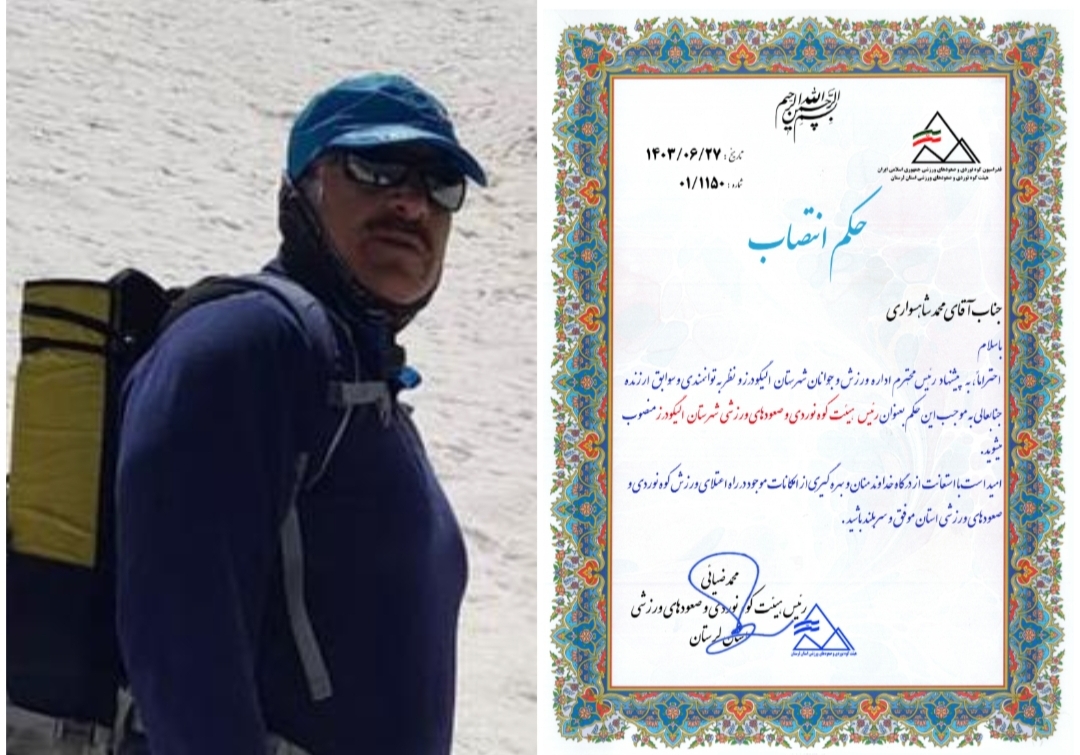 بسم الله الرحمن الرحیم
فدراسیون کوه نوردی و صعودهای ورزشی جمهوری اسلامی ایران
هیئت کوه نوردی و صعودهای ورزشی استان لرستان
تاریخ : ۱۴۰۳/۰۶/۲۷
شماره : ۰۱/۱۱۵۰
حکم انتصاب
جناب آقای محمد شاهسواری
باسلام
احتراماً، به پیشنهاد رئیس محترم اداره ورزش و جوانان شهرستان الیگودرز و نظر به توانمندی و سوابق ارزنده
جنابعالی به موجب این حکم بعنوان رئیس هیئت کوه نوردی و صعودهای ورزشی شهرستان الیگودرز منصوب
میشوید.
امید است با استعانت از درگاه خداوند منان و بهره گیری از امکانات موجود در راه اعتلای ورزش کوه نوردی و
صعودهای ورزشی استان موفق و سربلند باشید.
محمد ضیائی
رئیس هیئت کوه نوردی و صعودهای ورزشی
استان لرستان
هیئت کوه نوردی و صعودهای ورزشی استان لرستان